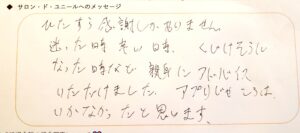 ● サロン・ド・ユニールへのメッセージ
ひたすら感謝しかありません
迷った時 辛い時、くじけそうに
なった時など 親身にアドバイス
いただけました。アプリじゃこうは
いかなかったと思います。